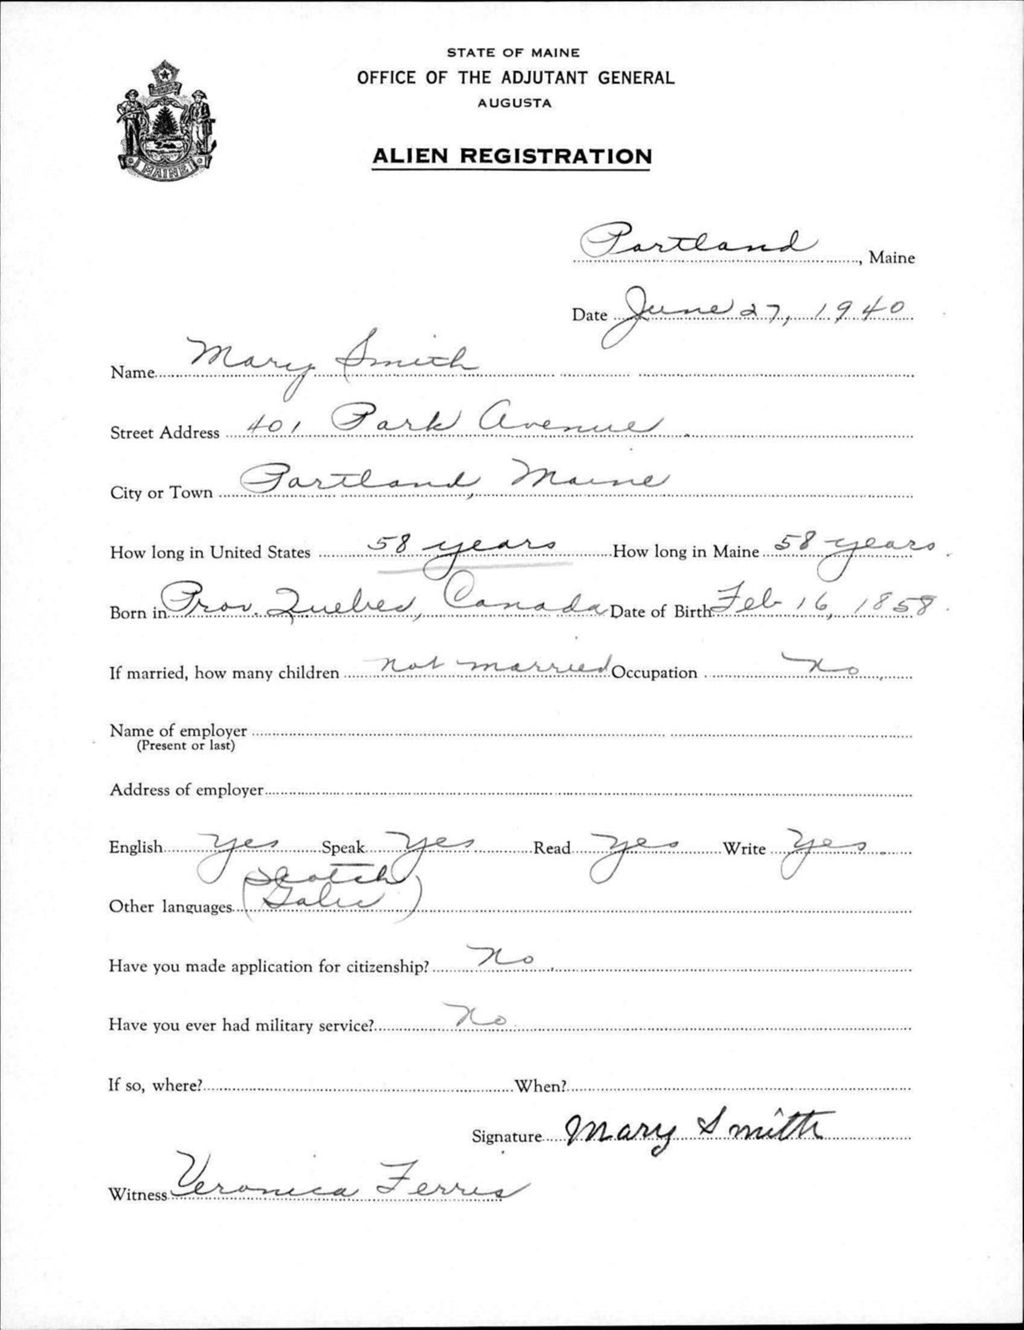 STATE OF MAINE
OFFICE OF THE ADJUTANT GENERAL
AUGUSTA
ALIEN REGISTRATION
MAINE
Portland, Maine
Date June 27, 1940
Name Mary Smith
Street Address 401 Park Avenue
City or Town Portland, Maine
How long in United States 58 years How long in Maine 58 years
Born in Prov. Quebec, Canada Date of Birth Feb 16, 1858
If married, how many children not married Occupation No
Name of employer
(Present or last)
Address of employer
English yes Speak yes Read yes Write yes
Scotch
Other languages (Galic)
Have you made application for citizenship? No
Have you ever had military service? No
If so, where? When?
Signature Mary Smith
Witness Veronica Ferris